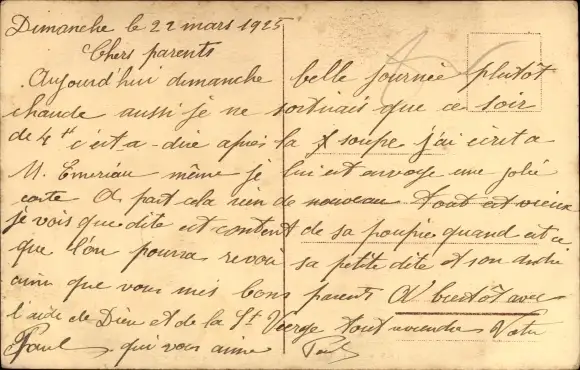 Dimanche le 22 mars 1925
Chers parents
Aujourd'hui dimanche belle journée plutôt
chaude aussi je ne sortirais que ce soir
de 4 c'est a-dire après la soupe j'ai écrit a
M. Emeriau même je lui est envoye une jolie
carte A part cela rien de nouveau tout est vieux
je vois que dite est content de sa poupie quand est ce
que l'on pourra revoir sa petite dite et son
ainsi que vous mes bons parents A bientôt avec
l'aide de Dieu et de la St Vierge tout viendra Votre
Paul qui vous aime Paul